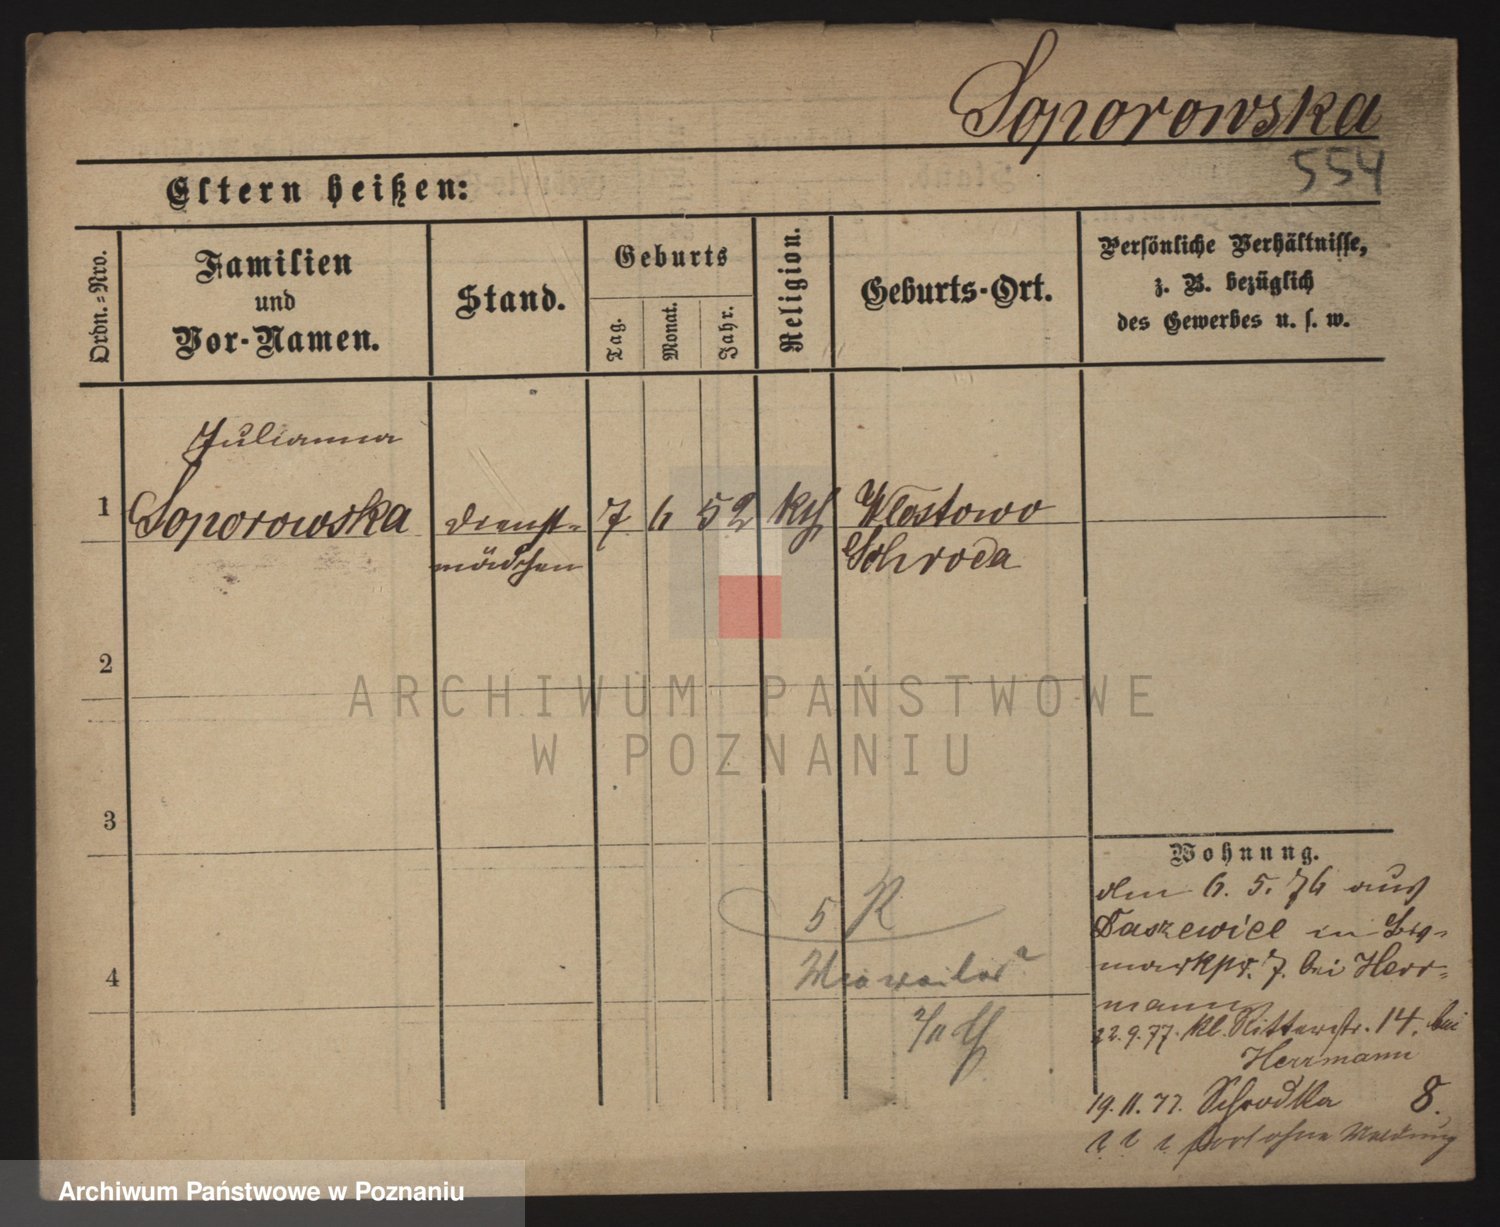 Soporowska
554
Eltern heißen:
Ordn.=Nro.
Familien
und
Vor-Namen.
Stand.
Geburts
Tag.
Monat.
Jahr.
Religion.
Geburts-Ort.
Persönliche Verhältnisse,
z. B. bezüglich
des Gewerbes u. s. w.
Julianna
1 Soporowska Dienst= 7 6 52 kth Wlostowo
mädchen Schroda
2
3
4
5 R
Wohnung.
den 6. 5. 76 aus
Daszewice in
markpr. 7. bei Herr=
mann
22.9.77. kl. Ritterstr. 14. bei
Herrmann
19.11.77. Schrodka 8.
fort ohne Meldung
ARCHIWUM PAŃSTWOWE
W POZNANIU
Archiwum Państwowe w Poznaniu